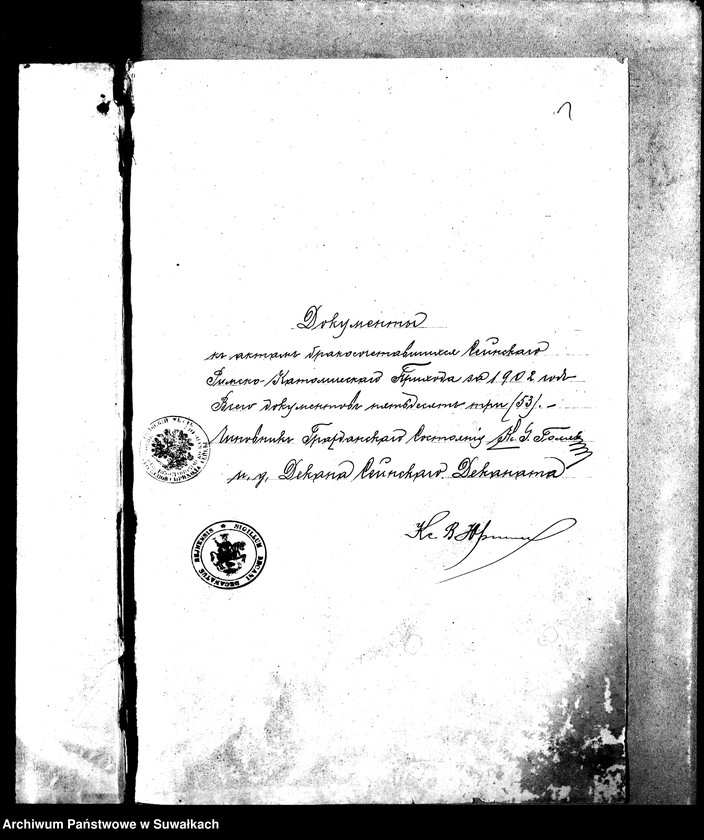 Документы
къ актамъ бракосочетавшихся Сейнскаго
Римско-Католическаго Прихода за 1902 годъ
Всего документовъ пятьдесятъ три (53). –
Чиновникъ Гражданскаго Состоянія Кс. І.
и. д. Декана Сейнскаго Деканата
Кс. В
SIGILLUM DECANI DECANATUS SEJNENSIS
Archiwum Państwowe w Suwałkach